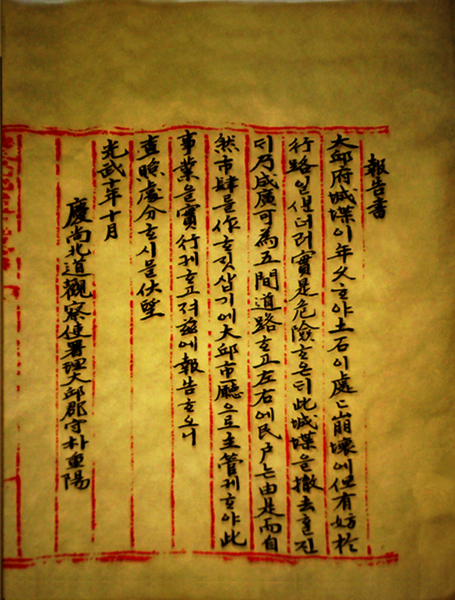 報告書
大邱府城堞이年久ᄒᆞ야土石이處〻崩壞에但有妨於
行路일ᄲᅮᆫ더러實是危險ᄒᆞ온디此城堞을撤去ᄒᆞᆯ진
디乃成廣可為五間道路ᄒᆞ고左右에民戶는由是而自
然市肆를作ᄒᆞ깃삽기에大邱市廳으로主管케ᄒᆞ야此
事業을實行케ᄒᆞ고져玆에報告ᄒᆞ오니
査照處分ᄒᆞ시믈伏望
光武十年十月
慶尙北道觀察使署理大邱郡守朴重陽